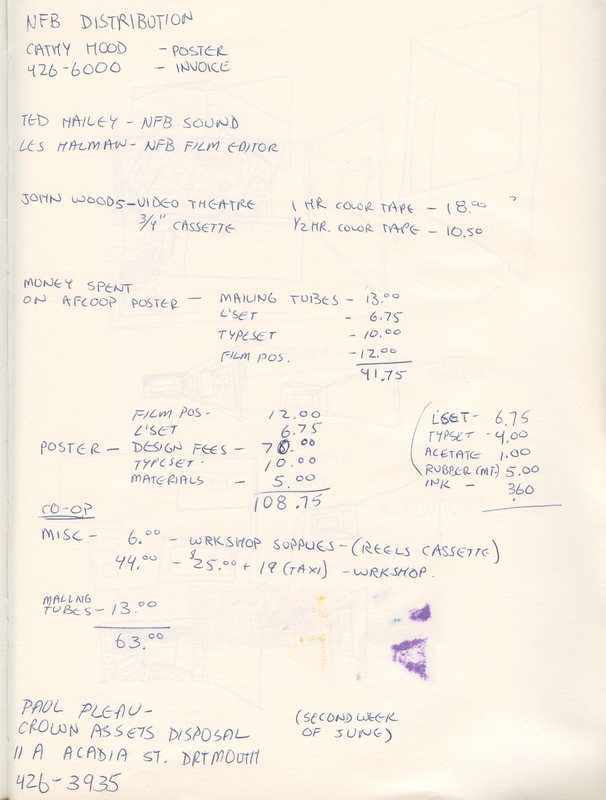 NFB DISTRIBUTION
CATHY HOOD - POSTER
426-6000 - INVOICE
TED HAILEY - NFB SOUND
LES HALMAN - NFB FILM EDITOR
JOHN WOODS - VIDEO THEATRE 1 HR COLOR TAPE - 18.00
3/4" CASSETTE 1/2 HR. COLOR TAPE - 10.50
MONEY SPENT
ON AFCOOP POSTER - MAILING TUBES - 13.00
L'SET - 6.75
TYPESET - 10.00
FILM POS. - 12.00
41.75
FILM POS - 12.00
L'SET 6.75
POSTER - DESIGN FEES - 70.00
TYPESET - 10.00
MATERIALS - 5.00
108.75
L'SET - 6.75
TYPSET - 4.00
ACETATE 1.00
RUBBER (MT) 5.00
INK - 360
CO-OP
MISC - 6.00 - WRKSHOP SUPPLIES - (REELS CASSETTE)
44.00 - $25.00 + 19 (TAXI) - WRKSHOP.
MAILING
TUBES - 13.00
63.00
PAUL PLEAU -
CROWN ASSETS DISPOSAL
11 A ACADIA ST. DRTMOUTH
426-3935
(SECOND WEEK
OF JUNE)